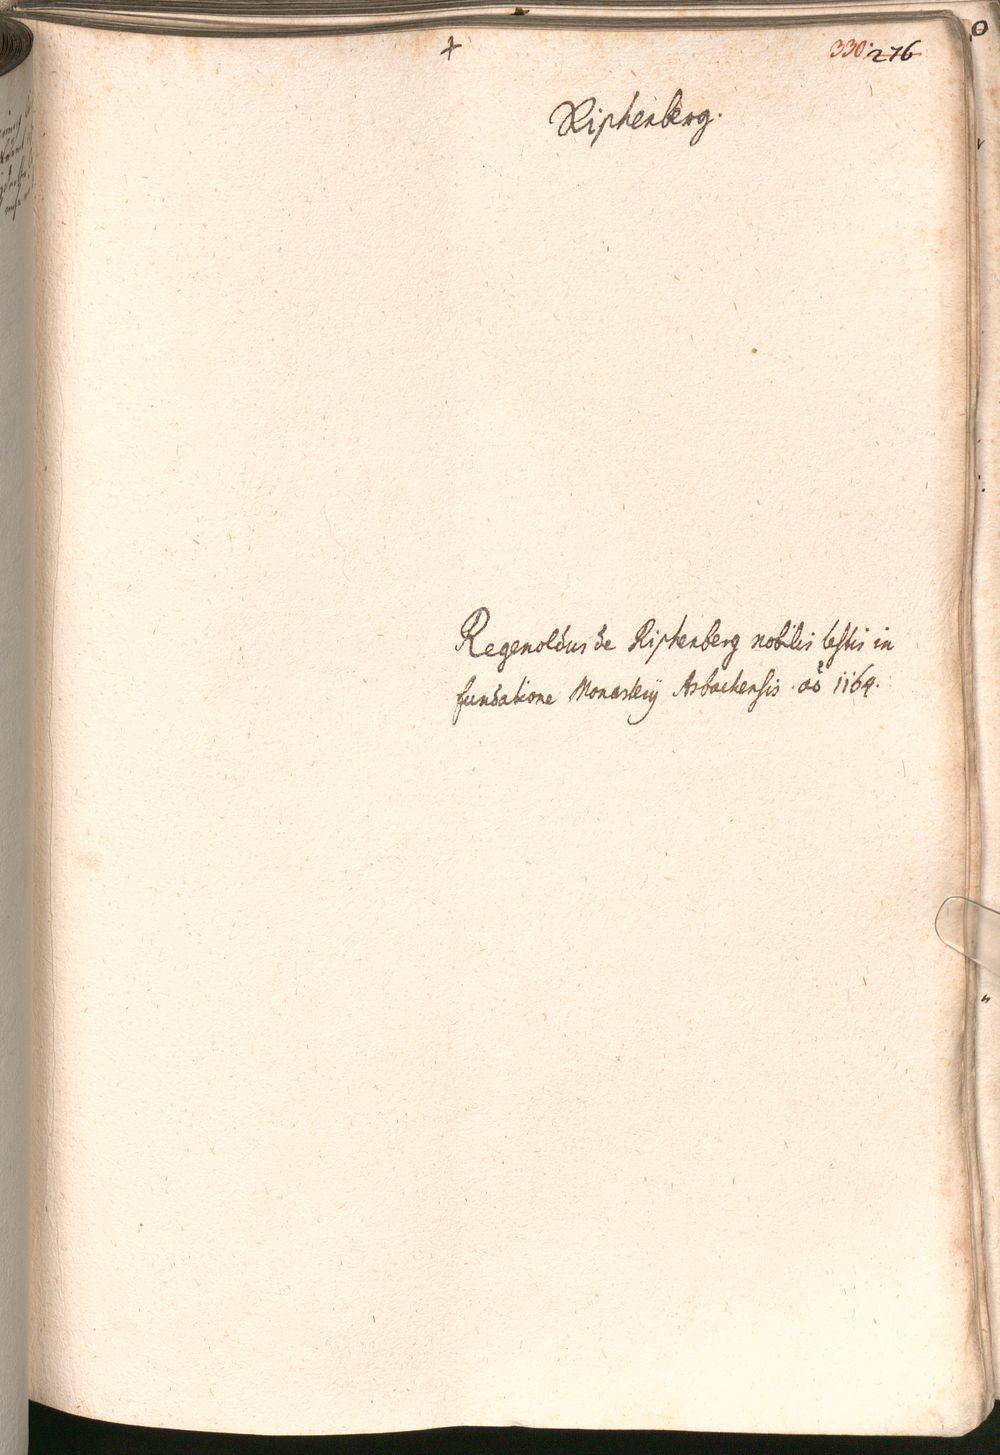 +
330. 276
Ripherberg.
Regenoldus de Ripherberg nobilis testis in
fundatione Monasterij Asbachensis. aõ 1164.